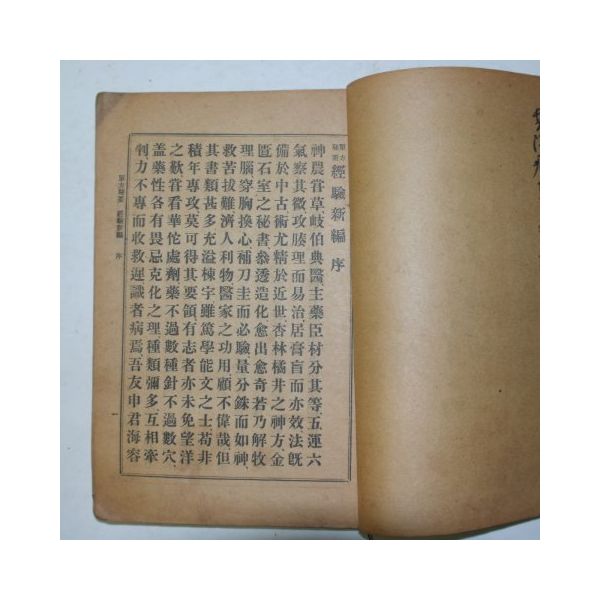 單方祕要 經驗新編 序
神農嘗草岐伯典醫主藥臣材分其等五運六
氣察其微攻腠理而易治居膏肓而亦效法旣
備於中古術尤精於近世杏林橘井之神方金
匱石室之秘書叅透造化愈出愈奇若乃解牧
理腦穿胸換心補刀圭而必驗量分銖而如神
救苦拔難濟人利物醫家之功用顧不偉哉但
其書類甚多充溢棟宇雖篤學能文之士苟非
積年專攻莫可得其要領有志者亦未免望洋
之歎甞看華佗處劑藥不過數種針不過數穴
盖藥性各有畏忌克化之理種類彌多互相牽
判力不專而收救遲識者病焉吾友申君海容
單方祕要 經驗新編 序
一